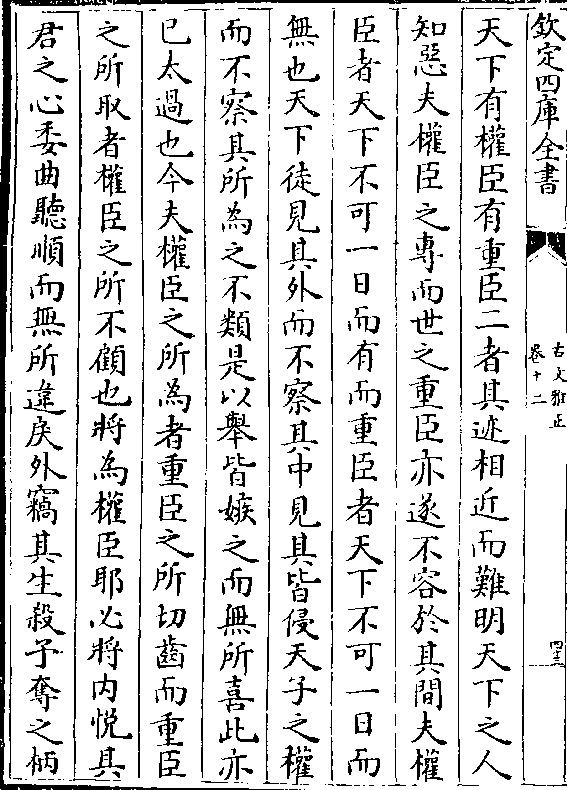 欽定四庫全書
古文雅正
卷十二
天下有權臣有重臣二者其迹相近而難明天下之人
知惡夫權臣之專而世之重臣亦遂不容於其間夫權
臣者天下不可一日而有而重臣者天下不可一日而
無也天下徒見其外而不察其中見其皆侵天子之權
而不察其所為之不類是以舉皆嫉之而無所喜此亦
已太過也今夫權臣之所為者重臣之所切齒而重臣
之所取者權臣之所不顧也將為權臣耶必將内悦其
君之心委曲聽順而無所違戾外竊其生殺予奪之柄